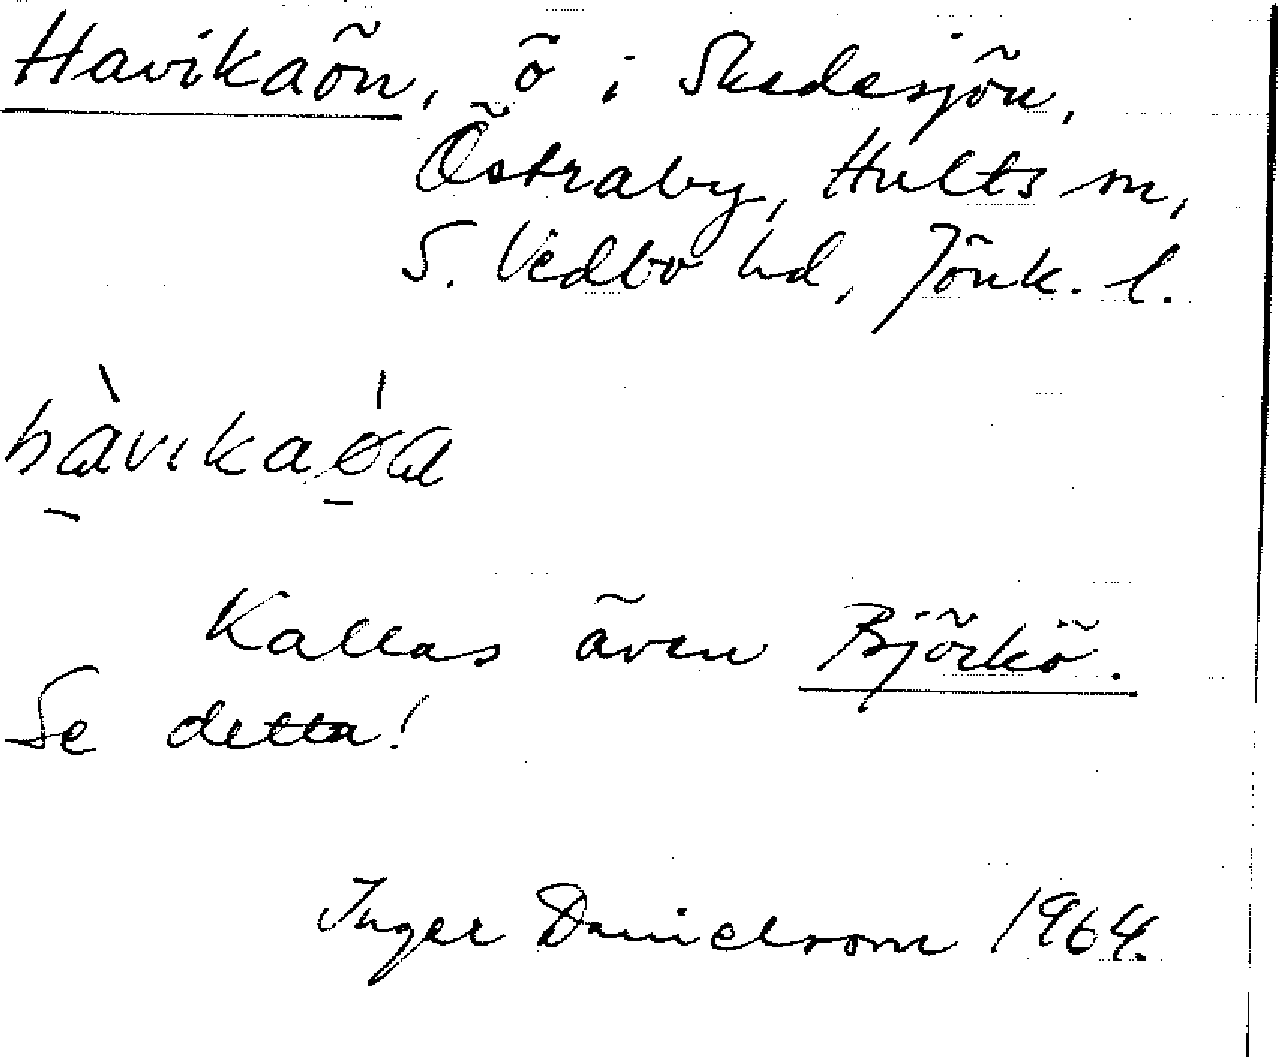 Havikaön, ö i Skedesjön,
Östraby, Hults sn,
S. Vedbo hd, Jönk. l.
Kallas även Björkö.
Se detta!
Inger Danielsson 1964.